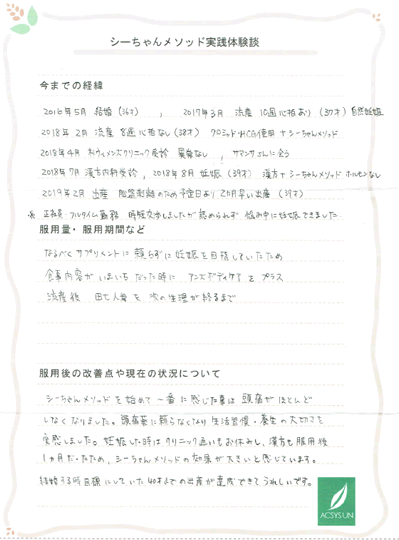 シーちゃんメソッド実践体験談
今までの経緯
2016年5月 結婚(36才) , 2017年3月 流産 10週心拍あり (37才) 自然妊娠
2018年2月 流産 8週心拍なし(38才) クロミッド・HCG使用 +シーちゃんメソッド
2018年4月 ウィメンズクリニック受診 異常なし , サマンサさんに会う
2018年7月 漢方内科受診 , 2018年8月 妊娠 (39才) 漢方+シーちゃんメソッド ホルモンなし
2019年2月 出産 胎盤剥離のため予定日より2カ月早い出産 (39才)
※ 正社員・フルタイム勤務 時短交渉しましたが認められず 悩み中に妊娠できました。
服用量・服用期間など
なるべくサプリメントに頼らずに妊娠を目指していたため
食事内容がいまいちだった時に アンズボディケアをプラス
流産後 田七人参を次の生理が終るまで
服用後の改善点や現在の状況について
シーちゃんメソッドを始めて一番に感じた事は頭痛がほとんど
しなくなりました。頭痛薬に頼らなくなり生活習慣・養生の大切さを
実感しました。妊娠した時はクリニック通いもお休みし、漢方も服用後
1ヵ月だったため、シーちゃんメソッドの効果が大きいと感じています。
結婚する時目標にしていた40才までの出産が達成できてうれしいです。
ACSYSUN